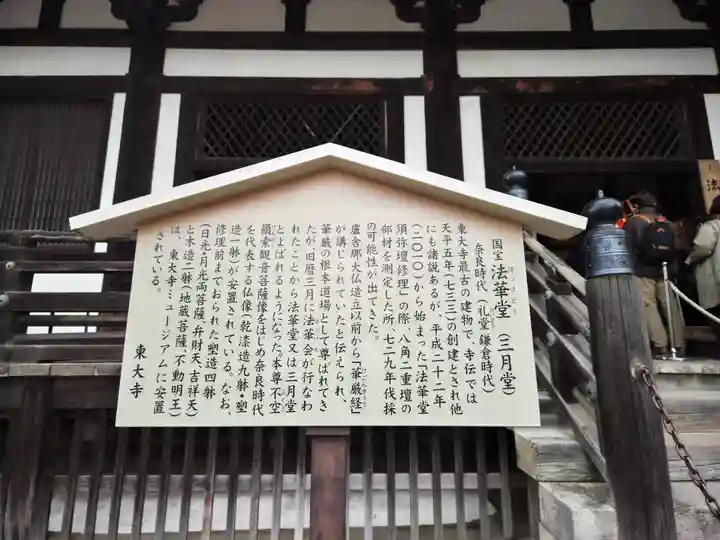 国宝 法華堂（三月堂）
ほっけどう
奈良時代（礼堂 鎌倉時代）
東大寺最古の建物で、寺伝では
天平五年（七三三）の創建とされ他
にも諸説あるが、平成二十二年
（二〇一〇）から始まった『法華堂
須弥壇修理』の際、八角二重壇の
部材を測定した所、七二九年伐採
の可能性が出てきた。
盧舎那大仏造立以前から『華厳経』
が講じられていたと伝えられ、
華厳の根本道場として尊ばれてき
たが、旧暦三月に法華会が行なわ
れたことから法華堂又は三月堂
とよばれるようになった。本尊不空
羂索観音菩薩像をはじめ奈良時代
を代表する仏像（乾漆造九躰・塑
造一躰）が安置されている。なお、
修理前までおられた塑造四躰
（日光・月光両菩薩・弁財天・吉祥天）
と木造二躰（地蔵菩薩・不動明王）
は、東大寺ミュージアムに安置
されている。
東大寺
法